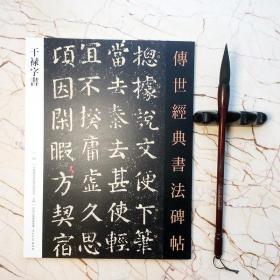 干禄字書
傳世經典書法碑帖
揔據説文便下筆
當去泰去甚使輕
宜不揆庸虛久思
項因閑暇方契宿